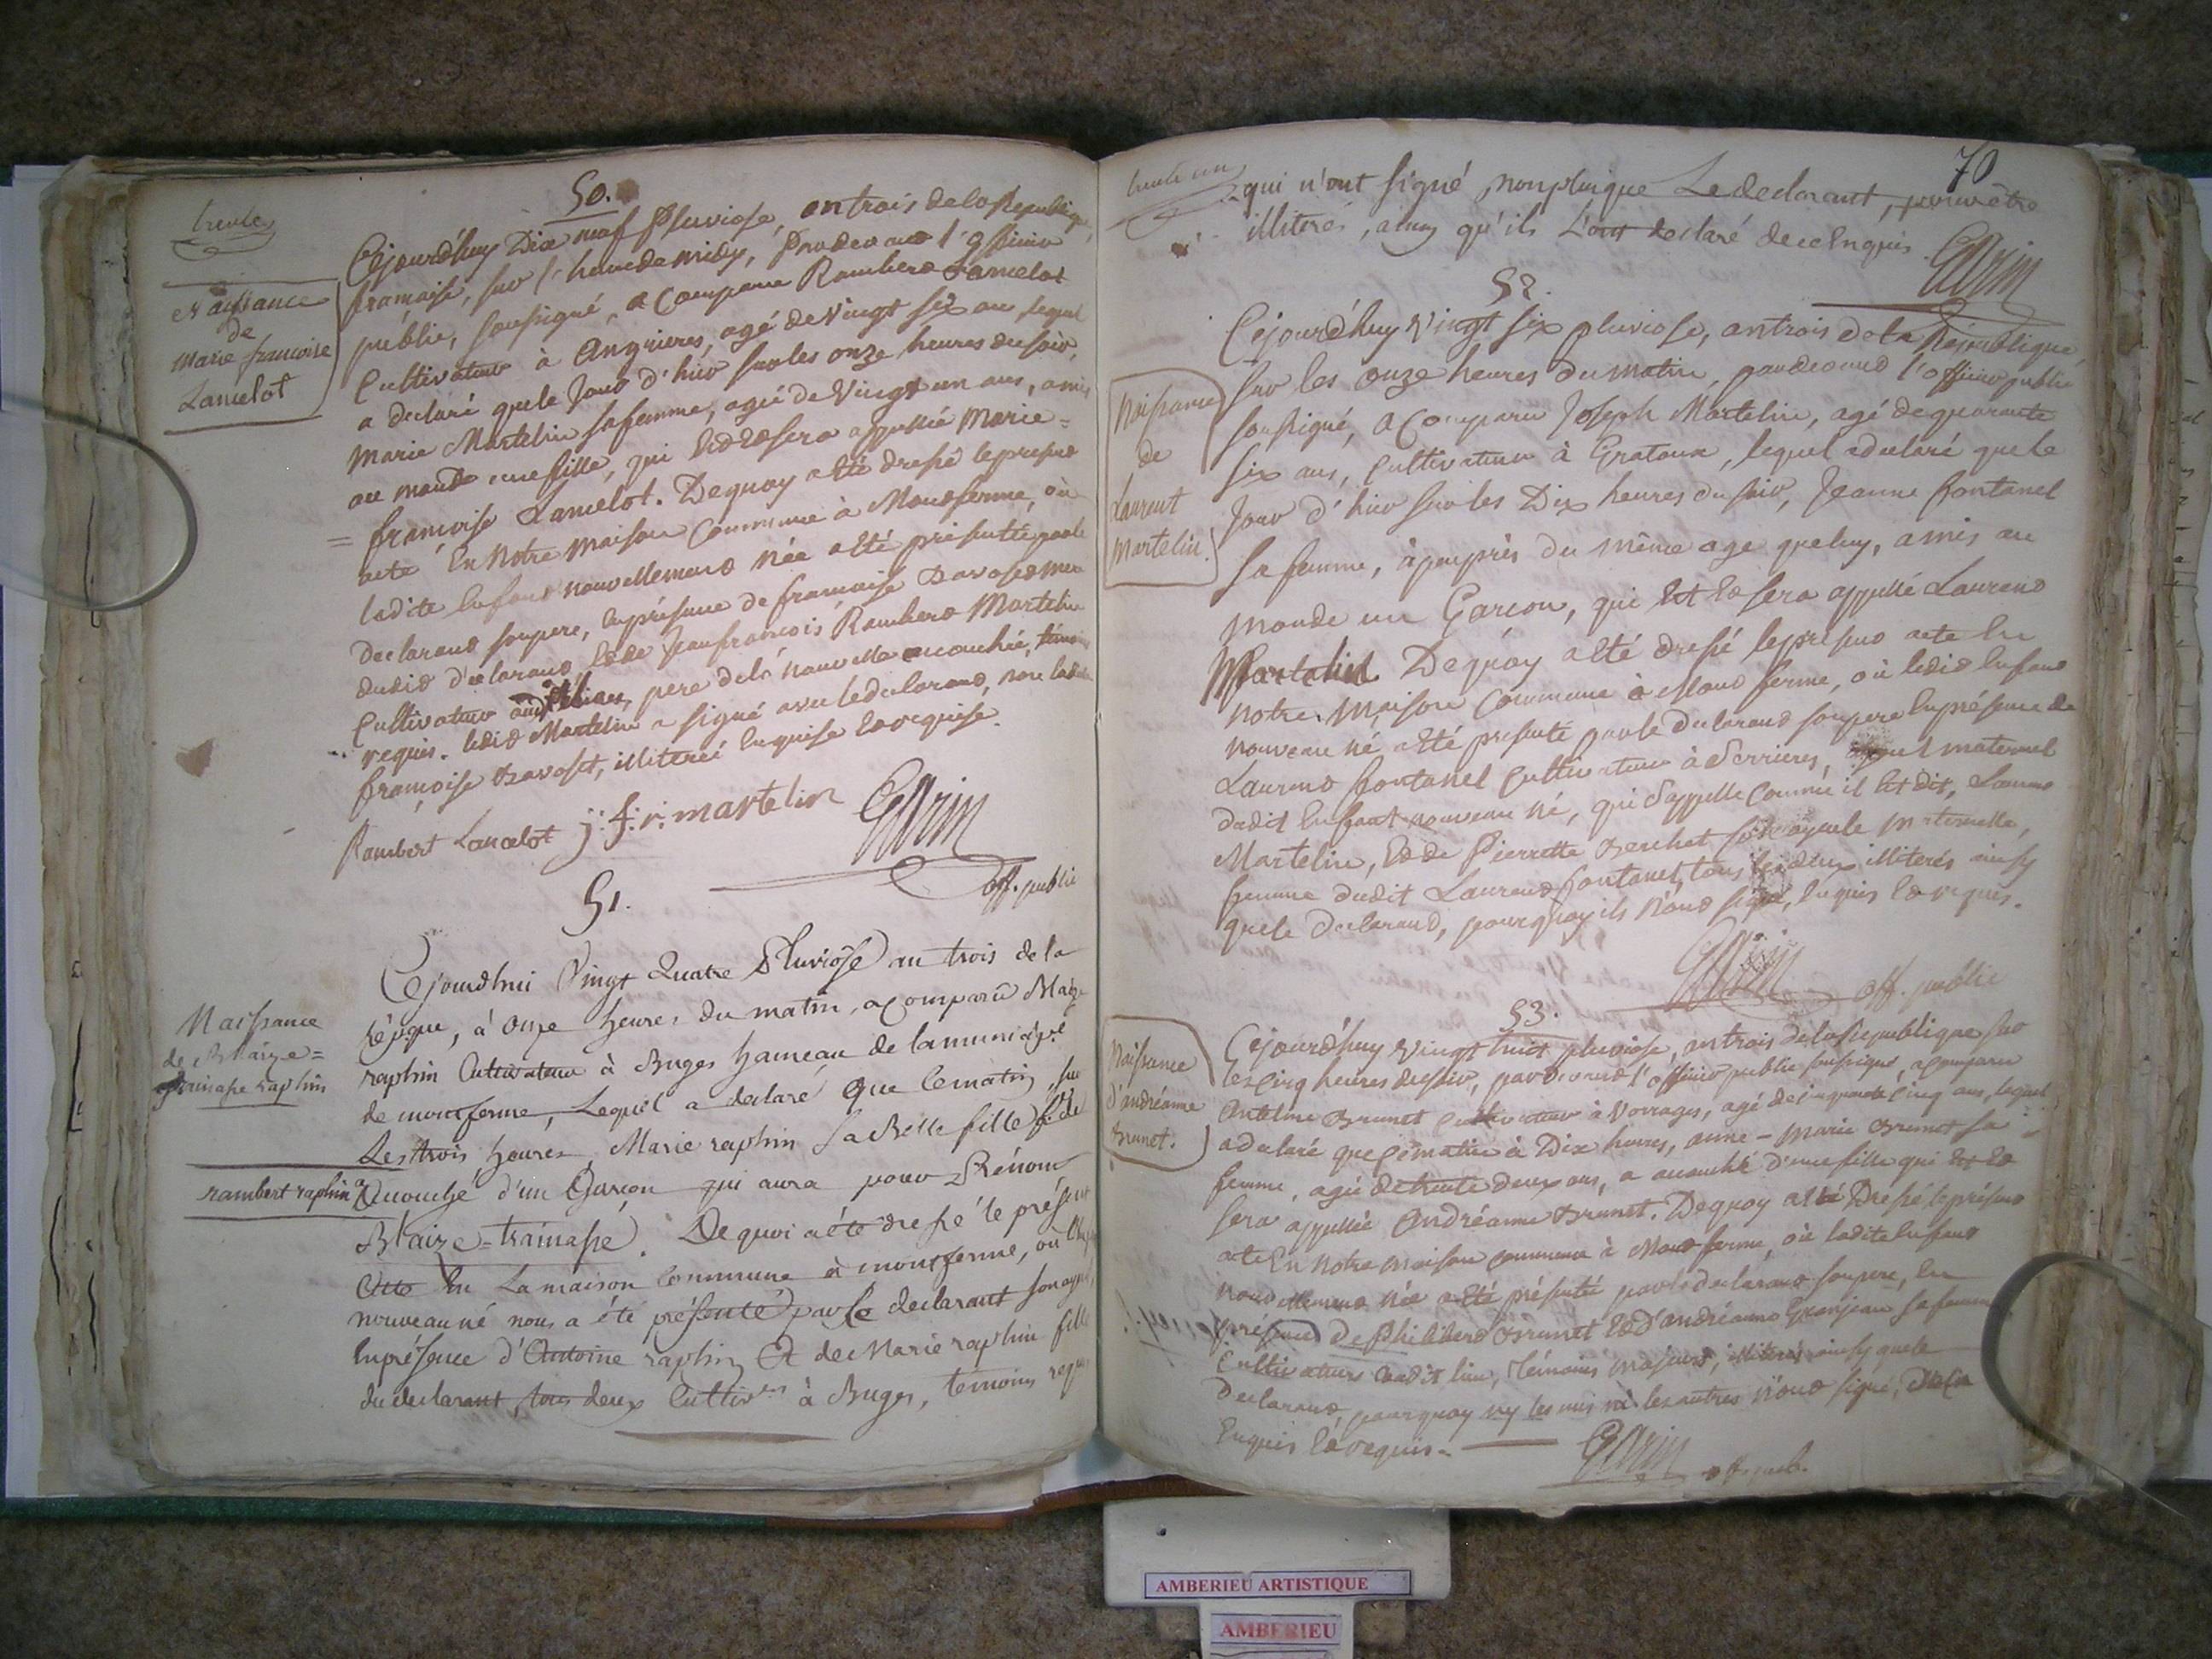 trente
50.
Cejourd'huy Dix neuf Pluviose, an trois de la Republique
françoise, sur l'heure de midy, Pardevant l'officier
public, soussigné, a comparu Rambert Lancelot
Cultivateur à Angrieres, agé de vingt six ans lequel
a declaré que le Jour d'hier sur les onze heures du soir,
Marie Martelin sa femme, agée de vingt un ans, a mis
au monde une fille, qui Est Et sera appellée Marie=
=françoise Lancelot. Dequoy a été dressé le present
acte En Notre maison Commune à Montferme, où
ladite Enfant nouvellement née a été présentée par le
Declarant son pere, En présence de françoise
dudit déclarant, Et de Jean françois Rambert Martelin
Cultivateur audit lieu, pere de la nouvelle accouchée, témoins
requis. Ledit Martelin a signé avec le declarant, non ladite
françoise, illiterée Enquise Et requise.
Naissance
de
Marie françoise
Lancelot
Rambert Lancelot j. f. r. martelin Garin
off. public
51.
Cejourdhui Vingt Quatre Pluviôse an trois de la
Répque, à onze heures du matin, a comparû Blaize
raphin Cultivateur à Buges hameau de la municipté
de montferme, Lequel a declaré que ce matin, sur
Les trois heures, Marie raphin sa Belle fille
accouché d'un Garçon qui aura pour Prénom
Blaize=trainasse. De quoi a été dressé le présent
Acte En La maison Commune à montferme, ou l'
nouveau né nous a été présenté par le declarant son ayeul
En présence d'Antoine raphin Et de Marie raphin fille
du declarant, tous deux Cultivrs à Buges, témoins requis
Naissance
de Blaize=
trainasse raphin
rambert raphin
trente un
70
qui n'ont signé non plus que Le declarant, pour être
illiterés, ainsy qu'ils L'ont declaré de ce Enquis
Garin
52.
Cejourd'huy vingt six pluviose, an trois de la République
sur les onze heures du matin, pardevant l'officier public
soussigné, a comparu Joseph Martelin, agé de quarante
six ans, cultivateur à Gratoux, lequel a declaré que le
Jour d'hier sur les Dix heures du soir, Jeanne fontanel
sa femme, à peu près du même age que luy, a mis au
monde un Garçon, qui Est Et sera appellé Laurent
Martelin Dequoy a été dressé le present acte En
notre Maison Commune à Mont ferme, où ledit Enfant
nouveau né a été presenté par le declarant son pere En présence de
Laurent fontanel Cultivateur à Serrieres, ayeul maternel
dudit Enfant nouveau né, qui s'appelle comme il Est dit, Laurent
Martelin, Et de Pierrette son ayeule maternelle,
femme dudit Laurent fontanel, tous les deux illiterés ainsy
que le declarant, pourquoy ils n'ont signé, Enquis Et requis.
Naissance
de
Laurent
Martelin.
Garin off. public
53.
Cejourd'huy vingt huit pluviose, an trois de la Republique sur
les cinq heures du soir, pardevant l'officier public soussigné, a comparu
Antelme Brunet cultivateur à Vorages, agé de cinquante cinq ans, lequel
a declaré que ce matin à Dix heures, anne-marie Brunet sa
femme, agée de trente deux ans, a accouché d'une fille qui Est Et
sera appellée andréanne Brunet. Dequoy a été Dressé le présent
acte En Notre maison commune à Mont ferme, où ladite Enfant
nouvellement née a été présentée par le declarant son pere, En
présence De Philibert Brunet Et d'andréanne Granjean sa femme
Cultivateurs audit lieu, témoins majeurs, illiterés ainsy que le
declarant, pourquoy ny les uns ni les autres n'ont signé, de ce
Enquis Et requis.
Naissance
d'andréanne
Brunet.
Garin off. pub.
AMBERIEU ARTISTIQUE
AMBERIEU